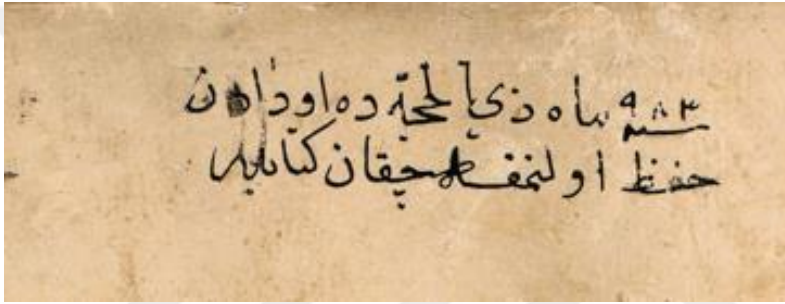 سنه ٩٨٣ ماه ذي الحجة ده اودادن
حفظ اولنمغه چيقان كتابلر